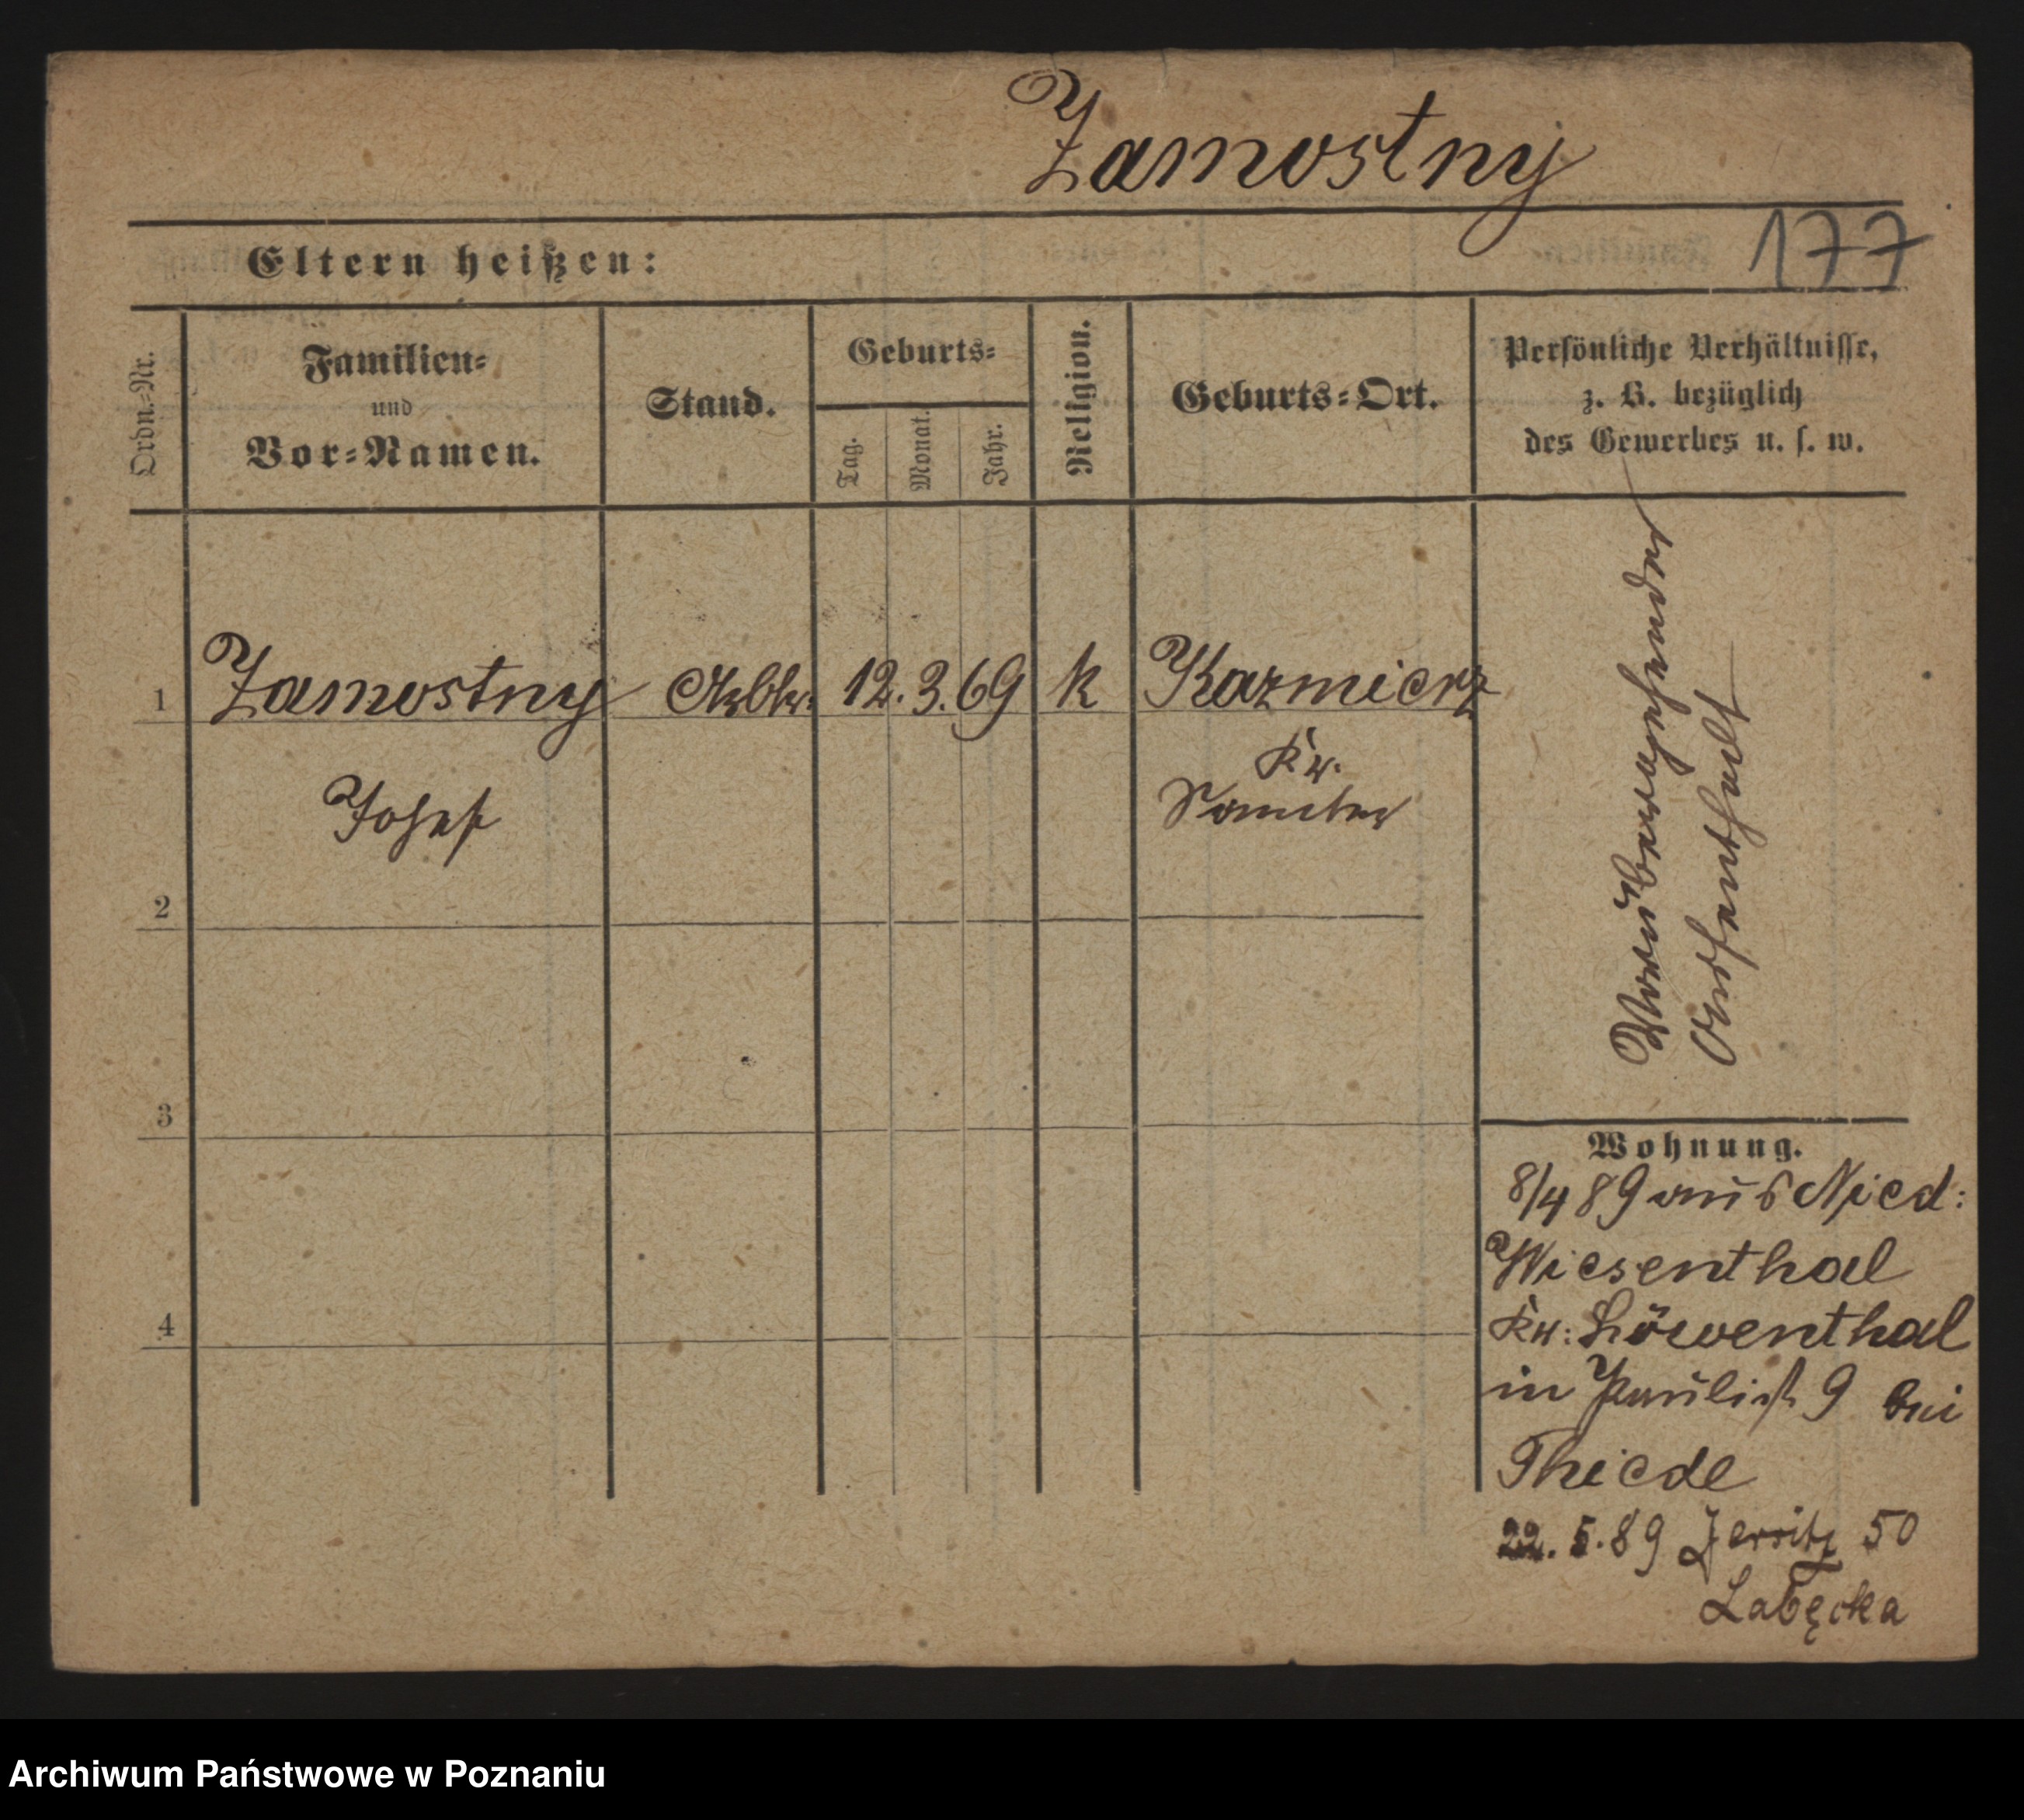 Zamostny
177
Eltern heißen:
Ordn.-Nr.
Familien-
und
Vor-Namen.
Stand.
Geburts-
Tag.
Monat.
Jahr.
Religion.
Geburts-Ort.
Persönliche Verhältnisse,
z. B. bezüglich
des Gewerbes u. s. w.
1 Zamostny Arbtr. 12. 3. 69 k Kazmierz
Kr.
Josef Samter
Vorübergehender
Aufenthalt
2
3
4
Wohnung.
8/4 89 aus Nied:
Wiesenthal
Kr: Löwenthal
in Paulist 9 bei
Thiede
22. 5. 89 Jersitz 50
Labęcka
Archiwum Państwowe w Poznaniu